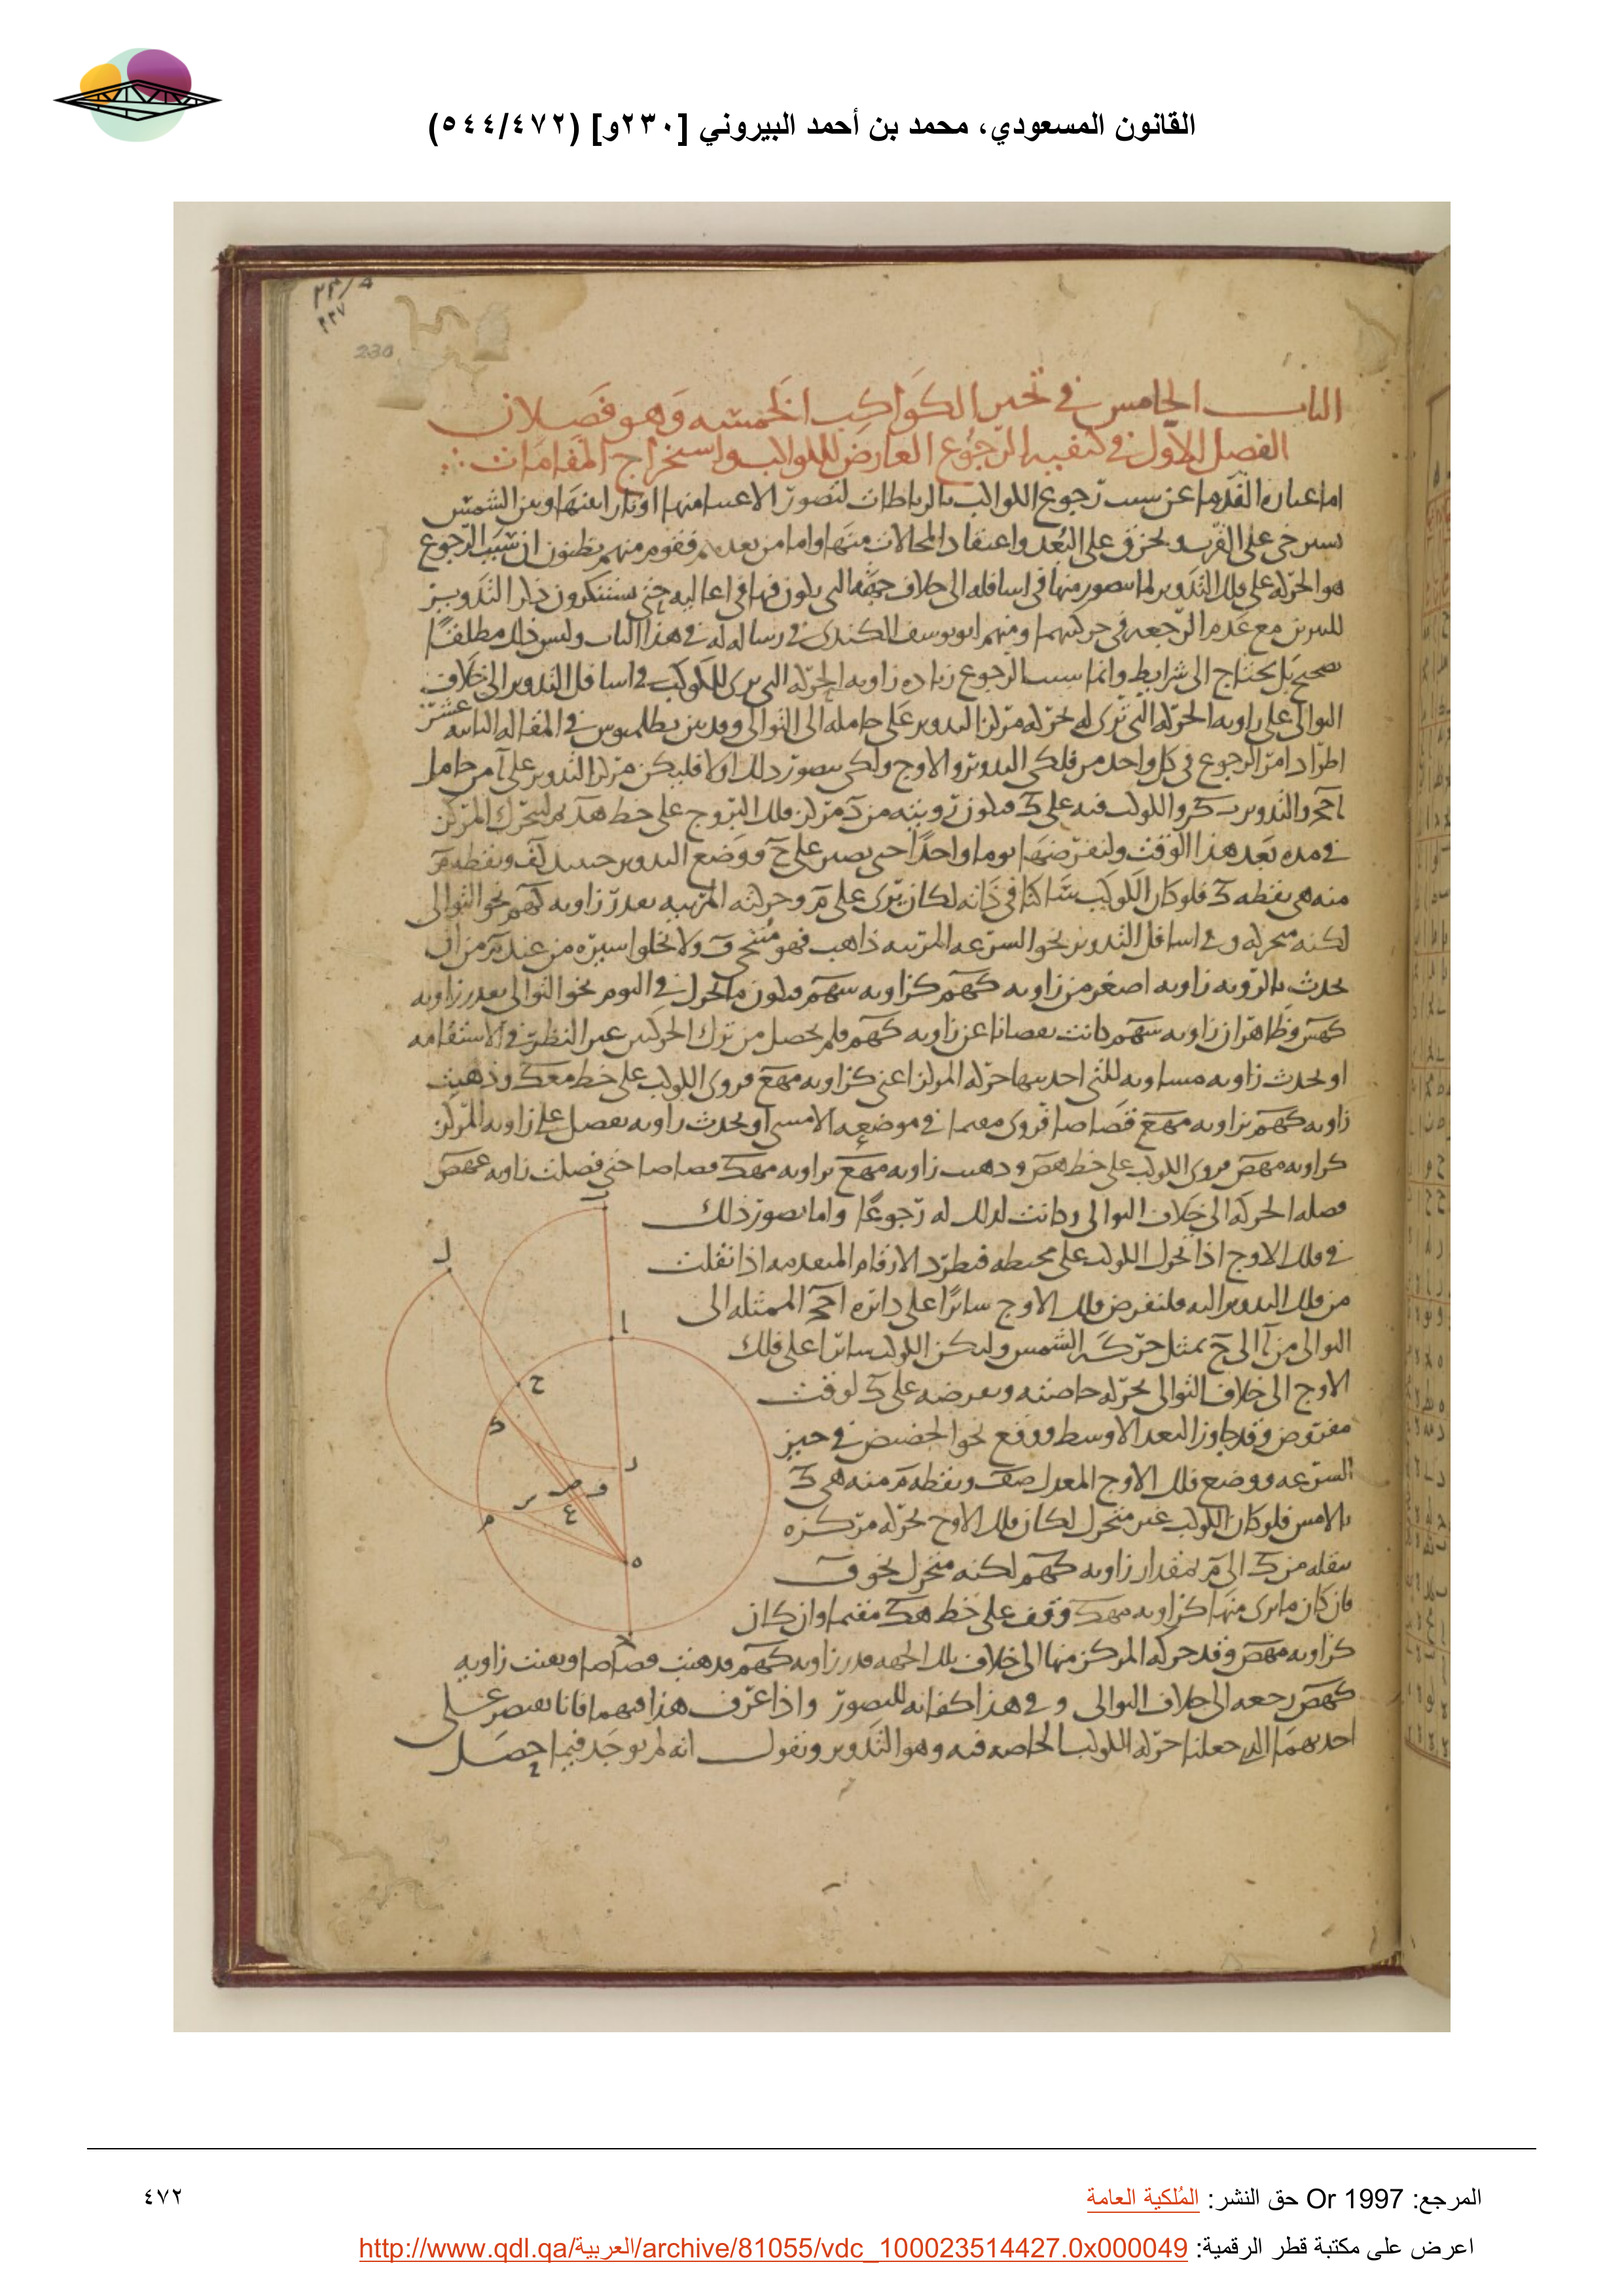 القانون المسعودي، محمد بن أحمد البيروني [٢٣٠و] (٥٤٤/٤٧٢)
230
الباب الخامس في تحير الكواكب الخمسة وهو فصلان
الفصل الاول في كيفية الرجوع العارض للكواكب واستخراج المقامات
اما عبارة القدما عن سبب رجوع الكواكب بالرباطات لتصور الاعسا منها اوتار ابينها وبين الشمس
تسترخي على القرب وتحزق على البعد واعتقاد المحالات منها واما من بعدهم فقوم منهم يظنون ان سبب الرجوع
هو الحركة على فلك التدوير لما يتصور منها في اسافله الى خلاف جهته التي يكون فيها في اعاليه حتى يستنكرون ذكر التدوير
للنيرين مع عدم الرجعة في حركتيهما ومنهم ابو يوسف الكندي في رسالة له في هذا الباب وليس ذلك مطلقا
صحيح بل يحتاج الى شرايط وانما سبب الرجوع زيادة زاوية الحركة التي يرى للكوكب في اسافل التدوير الى خلاف
التوالي على زاوية الحركة التي ترى له بحركة مركز التدوير على حامله الى التوالي وقد بين بطلميوس في المقالة الثانية عشر
اطراد امر الرجوع في كل واحد من فلكي التدوير والاوج ولكي يتصور ذلك اولا فليكن مركز التدوير على آ من حامل
احج والتدوير ب ك ر والكوكب فيه على ك فيكون رويته من ه مركز فلك البروج على خط هك ثم ليتحرك المركز
في مدة بعد هذا الوقت ولنفرضها يوما واحدا حتى يصير على ح ووضع التدوير حينيذ لف ونقطة م
منه هي نقطة ك فلو كان الكوكب ساكنا في ذاته لكان يرى على م وحركته المريية بقدر زاوية كهم نحو التوالي
لكنه متحرك وفي اسافل التدوير نحو السرعة المريية ذاهب فهو متنحي ف ولا يخلوا سيره من عند م من ان
يحدث بالروية زاوية اصغر من زاوية كهم كزاوية سهم فيكون ما تحرك في اليوم نحو التوالي بقدر زاوية
كهس وظاهر ان زاوية سهم كانت نقصانا عن زاوية كهم فلم يحصل من ترك الحركتين غير النظر في الاستقامة
او يحدث زاوية مساوية للتي احدثتها حركة المركز اعني كزاوية مهع فروي الكوكب على خط معك وذهبت
زاوية كهم بزاوية مهع قصاصا فروي مقيما في موضعه الامسي او يحدث زاوية تفضل على زاوية المركز
كزاوية مهص فروي الكوكب على خط هص وذهبت زاوية مهع بزاوية مهك قصاصا حتى فضلت زاوية عهص
فصله الحركة الى خلاف التوالي وكانت لذلك له رجوعا واما تصور ذلك
في فلك الاوج اذا تحرك الكوكب على محيطه فتطرد الارقام المتقدمة اذا نقلت
من فلك التدوير اليه فلنفرض فلك الاوج سائرا على دائرة احج الممثلة الى
التوالي من آ الى ح بمثل حركة الشمس وليكن الكوكب سائرا على فلك
الاوج الى خلاف التوالي بحركة خاصته ونفرضه على ك لوقت
مفروض وقد جاوز البعد الاوسط ووقع نحو الحضيض في حيز
السرعة ووضع فلك الاوج المعدل صف ونقطة م منه هي ك
بالامس فلو كان الكوكب غير متحرك لكان فلك الاوج بحركة مركزه
ينقله من ك الى م بمقدار زاوية كهم لكنه متحرك نحو ف
فان كان ما يرى منها كزاوية مهك وقف على خط هك مقيما وان كان
كزاوية مهص وقد حركه المركز منها الى خلاف تلك الجهة قدر زاوية كهم فذهبت قصاصا وبقيت زاوية
كهص رجعة الى خلاف التوالي وفي هذا كفاية للتصور واذا عرف هذا فيهما فانا نقتصر على
احديهما الذي جعلنا حركة الكوكب الخاصة فيه وهو التدوير ونقول انه لم يوجد فيما حصل
ل
ا
ح
ك
ر
ص
ف
ع
م
ه
المرجع: Or 1997 حق النشر: المُلكية العامة
٤٧٢
اعرض على مكتبة قطر الرقمية: http://www.qdl.qa/العربية/archive/81055/vdc_100023514427.0x000049